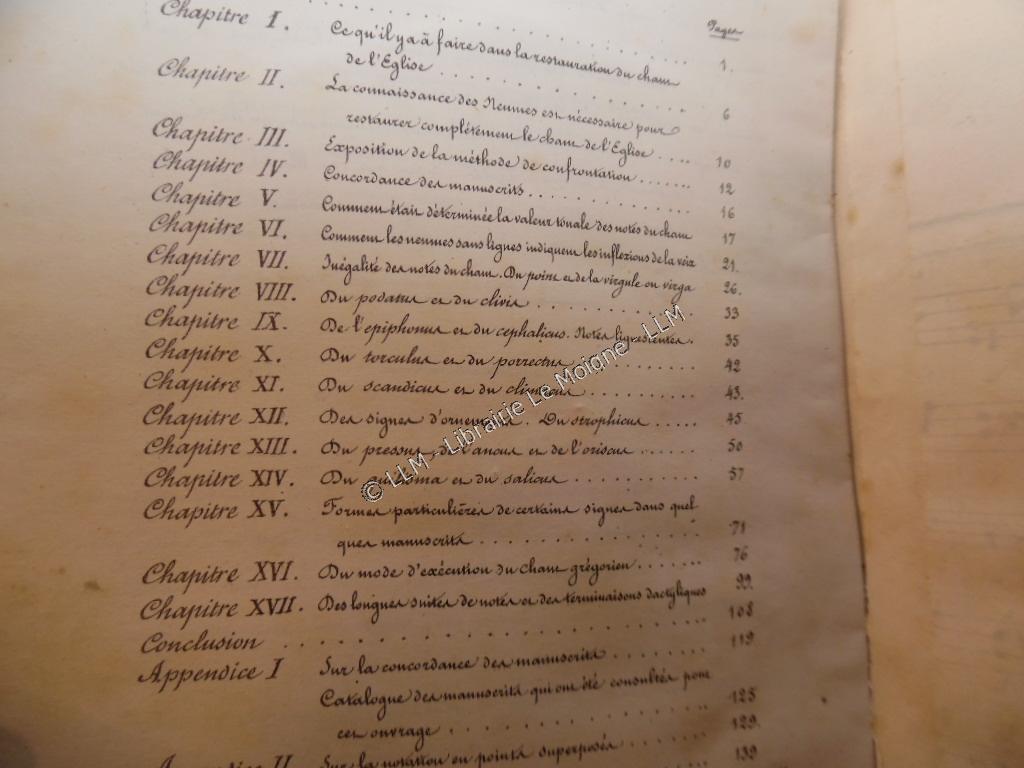 Pages
Chapitre I. Ce qu'il y a à faire dans la restauration du chant 1.
de l'Eglise
Chapitre II. La connaissance des Neumes est nécessaire pour 6
restaurer complètement le chant de l'Eglise
Chapitre III. Exposition de la méthode de confrontation 10
Chapitre IV. Concordance des manuscrits 12
Chapitre V. Comment était déterminée la valeur tonale des notes du chant 16
Chapitre VI. Comment les neumes sans lignes indiquent les inflexions de la voix 17
Chapitre VII. Inégalité des notes du chant. Du point et de la virgule ou virga 21.
Chapitre VIII. Du podatus et du clivis 26.
33
Chapitre IX. De l'epiphonus et du cephalicus. Notes liquescentes. 35
Chapitre X. Du torculus et du porrectus 42
Chapitre XI. Du scandicus et du climacus 43.
Chapitre XII. Des signes d'ornements. Du strophicus 45
Chapitre XIII. Du pressus, de l'ancus et de l'oriscus 50
Chapitre XIV. Du quilisma et du salicus 57
Chapitre XV. Formes particulières de certains signes dans quel
ques manuscrits 71
Chapitre XVI. Du mode d'exécution du chant grégorien 76
Chapitre XVII. Des longues suites de notes et des terminaisons dactyliques 99.
Conclusion 108
Appendice I Sur la concordance des manuscrits 119
Catalogue des manuscrits qui ont été consultés pour
cet ouvrage 125
129.
Appendice II Sur la notation en points superposés 139
© LLM - Librairie Le Moigne - LLM